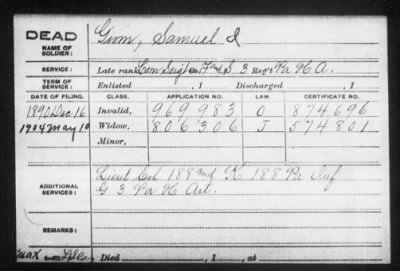 DEAD
NAME OF SOLDIER: Givin, Samuel I
SERVICE: Late rank Com Sergt & 2nd S 3 Reg't Pa H A.
TERM OF SERVICE: Enlisted , 1 Discharged , 1
DATE OF FILING. CLASS. APPLICATION NO. LAW. CERTIFICATE NO.
1890 Dec. 16 Invalid, 969983 O 874696
1904 May 10 Widow, 806306 J 574801
Minor,
ADDITIONAL SERVICES: Lieut Col 188 Pa Inf
G 3 Pa H Art.
REMARKS:
Died , 1 , at